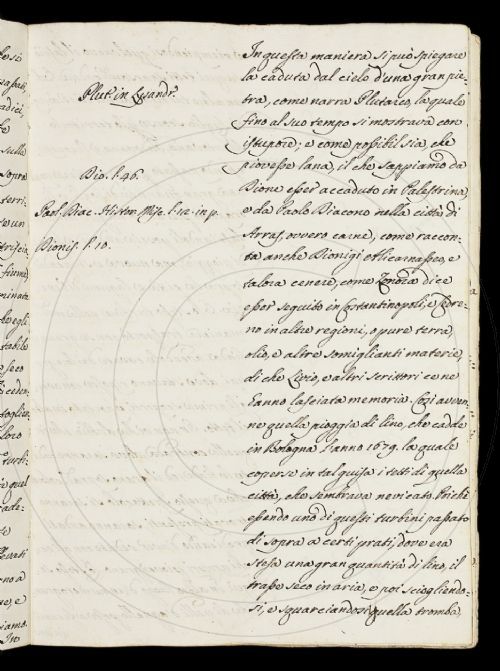 Plut. in Lysandr.
Dio. l. 46.
Paol. Diac. Histor. Misc. l. 12. in p.
Dionis. l. 10.
In questa maniera si può spiegare
la caduta dal cielo d'una gran pie-
tra, come narra Plutarco, la quale
fino al suo tempo si mostrava con
istupore; e come possibil sia, che
piovesse lana, il che sappiamo da
Dione esser accaduto in Palestrina,
e da Paolo Diacono nella città di
Arras, ovvero carne, come raccon-
ta anche Dionigi Alicarnasseo, e
talora cenere, come Zonara dice
esser seguito in Costantinopoli, e Cedre-
no in altre regioni, o pure terra,
olio, e altre somiglianti materie,
di che Livio, e altri scrittori ce ne
hanno lasciata memoria. Così avven-
ne quella pioggia di lino, che cadde
in Bologna l'anno 1679. la quale
coperse in tal guisa i tetti di quella
città, che sembrava nevicato. Poichè
essendo uno di questi turbini passato
di sopra a certi prati, dove era
stesa una gran quantità di lino, il
trasse seco in aria, e poi sciogliendo-
si, e squarciandosi quella tromba,